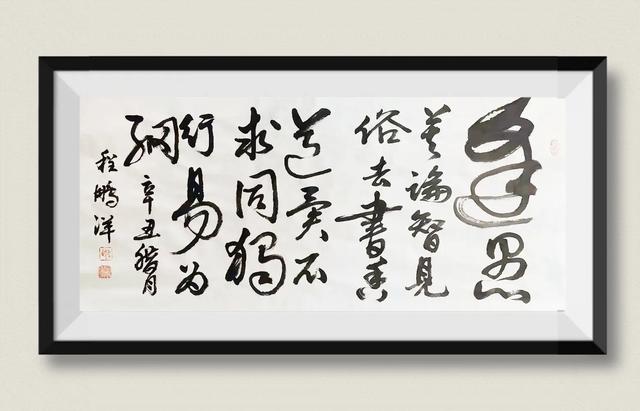 逢愚
莫論智見
俗去書香
道異不
求同獨
行易为
綱
辛丑腊月
程鵬洋